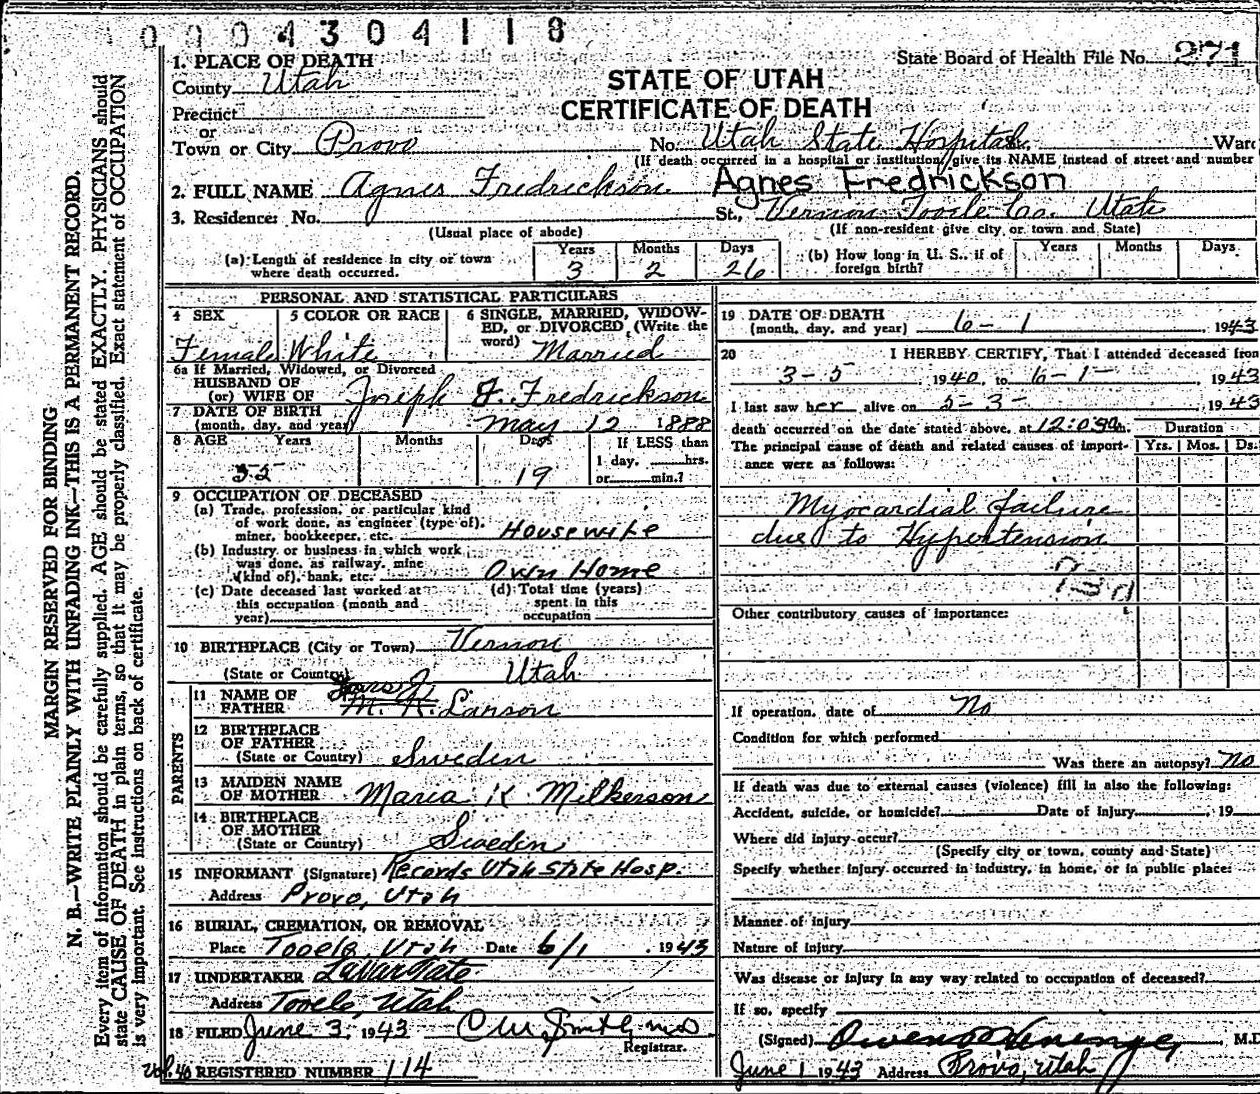 0004304118
State Board of Health File No. 271
STATE OF UTAH
CERTIFICATE OF DEATH
1. PLACE OF DEATH
County Utah
Precinct
or
Town or City Provo No. Utah State Hospital Ward
(If death occurred in a hospital or institution, give its NAME instead of street and number
2. FULL NAME Agnes Fredrickson Agnes Fredrickson
3. Residence: No. St., Vernon Tooele Co. Utah
(Usual place of abode) (If non-resident give city or town and State)
(a) Length of residence in city or town where death occurred. Years 3 Months 2 Days 26
(b) How long in U. S., if of foreign birth? Years Months Days
PERSONAL AND STATISTICAL PARTICULARS
4 SEX Female
5 COLOR OR RACE White
6 SINGLE, MARRIED, WIDOWED, or DIVORCED (Write the word) Married
6a If Married, Widowed, or Divorced
HUSBAND OF
(or) WIFE OF Joseph F. Fredrickson
7 DATE OF BIRTH
(month, day, and year) May 12 1888
8 AGE Years Months Days If LESS than
1 day, hrs.
or min.?
55 19
9 OCCUPATION OF DECEASED
(a) Trade, profession, or particular kind
of work done, as engineer (type of),
miner, bookkeeper, etc. Housewife
(b) Industry or business in which work
was done, as railway, mine
(kind of), bank, etc. Own Home
(c) Date deceased last worked at
this occupation (month and
year)
(d) Total time (years)
spent in this
occupation
10 BIRTHPLACE (City or Town) Vernon
(State or Country) Utah
PARENTS
11 NAME OF
FATHER Lars J. M. K. Larson
12 BIRTHPLACE
OF FATHER
(State or Country) Sweden
13 MAIDEN NAME
OF MOTHER Maria K Milkerson
14 BIRTHPLACE
OF MOTHER
(State or Country) Sweden
15 INFORMANT (Signature) Records Utah State Hosp.
Address Provo, Utah
16 BURIAL, CREMATION, OR REMOVAL
Place Tooele Utah Date 6/1, 1943
17 UNDERTAKER LaVar Tate
Address Tooele, Utah
18 FILED June 3, 1943 Smith, MD
Registrar.
Vol. 40 REGISTERED NUMBER 114
19 DATE OF DEATH
(month, day, and year) 6-1 1943
20 I HEREBY CERTIFY, That I attended deceased from
3-5 1940, to 6-1- 1943
I last saw her alive on 5-3- 1943
death occurred on the date stated above, at 12:03 m. Duration
The principal cause of death and related causes of importance were as follows: Yrs. Mos. Ds.
Myocardial failure
due to Hypertension
Other contributory causes of importance:
If operation, date of No
Condition for which performed
Was there an autopsy? No
If death was due to external causes (violence) fill in also the following:
Accident, suicide, or homicide? Date of Injury , 19
Where did injury occur?
(Specify city or town, county and State)
Specify whether injury occurred in industry, in home, or in public place:
Manner of injury
Nature of Injury
Was disease or injury in any way related to occupation of deceased?
If so, specify
(Signed) Owen M.D
June 1 1943 Address Provo, Utah
MARGIN RESERVED FOR BINDING
N. B.—WRITE PLAINLY WITH UNFADING INK—THIS IS A PERMANENT RECORD.
Every item of information should be carefully supplied. AGE should be stated EXACTLY. PHYSICIANS should
state CAUSE OF DEATH in plain terms, so that it may be properly classified. Exact statement of OCCUPATION
is very important. See instructions on back of certificate.